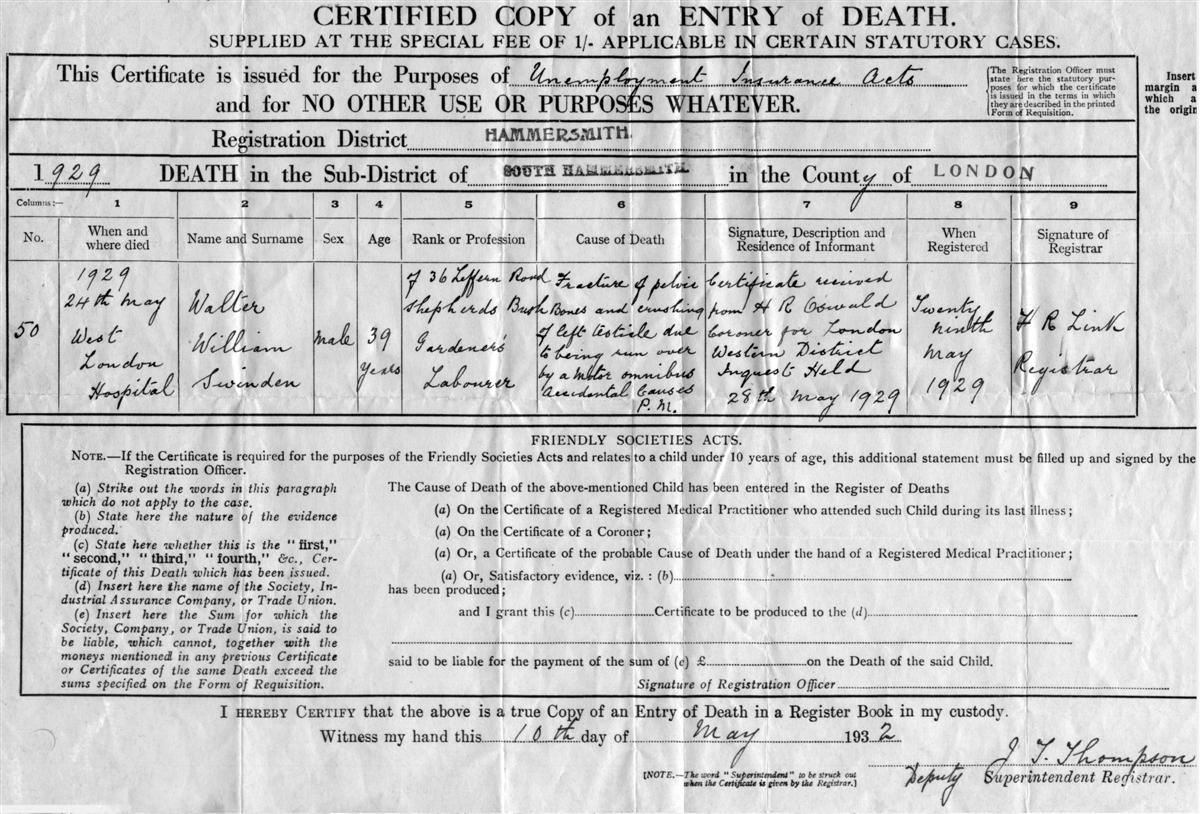 CERTIFIED COPY of an ENTRY of DEATH.
SUPPLIED AT THE SPECIAL FEE OF 1/- APPLICABLE IN CERTAIN STATUTORY CASES.
This Certificate is issued for the Purposes of Unemployment Insurance Acts
and for NO OTHER USE OR PURPOSES WHATEVER.
[The Registration Officer must
state here the statutory pur-
poses for which the certificate
is issued in the terms in which
they are described in the printed
Form of Requisition.]
Insert
margin a
which a
the origin
Registration District HAMMERSMITH.
1929 DEATH in the Sub-District of SOUTH HAMMERSMITH. in the County of LONDON
Columns:— 1 2 3 4 5 6 7 8 9
No. When and where died Name and Surname Sex Age Rank or Profession Cause of Death Signature, Description and Residence of Informant When Registered Signature of Registrar
50
1929
24th May
West
London
Hospital
Walter
William
Swinden
Male
39
years
of 36 Leffern Road
Shepherds Bush
Gardener's
Labourer
Fracture of pelvic
Bones and crushing
of left testicle due
to being run over
by a Motor omnibus
Accidental Causes
P.M.
Certificate received
from H R Oswald
Coroner for London
Western District
Inquest Held
28th May 1929
Twenty
ninth
May
1929
H R Link
Registrar
FRIENDLY SOCIETIES ACTS.
NOTE.—If the Certificate is required for the purposes of the Friendly Societies Acts and relates to a child under 10 years of age, this additional statement must be filled up and signed by the
Registration Officer.
(a) Strike out the words in this paragraph
which do not apply to the case.
(b) State here the nature of the evidence
produced.
(c) State here whether this is the "first,"
"second," "third," "fourth," &c., Cer-
tificate of this Death which has been issued.
(d) Insert here the name of the Society, In-
dustrial Assurance Company, or Trade Union.
(e) Insert here the Sum for which the
Society, Company, or Trade Union, is said to
be liable, which cannot, together with the
moneys mentioned in any previous Certificate
or Certificates of the same Death exceed the
sums specified on the Form of Requisition.
The Cause of Death of the above-mentioned Child has been entered in the Register of Deaths
(a) On the Certificate of a Registered Medical Practitioner who attended such Child during its last illness;
(a) On the Certificate of a Coroner;
(a) Or, a Certificate of the probable Cause of Death under the hand of a Registered Medical Practitioner;
(a) Or, Satisfactory evidence, viz. : (b)
has been produced;
and I grant this (c) Certificate to be produced to the (d)
said to be liable for the payment of the sum of (e) £ on the Death of the said Child.
Signature of Registration Officer
I HEREBY CERTIFY that the above is a true Copy of an Entry of Death in a Register Book in my custody.
Witness my hand this 10th day of May 1932
J T Thompson
[NOTE.—The word "Superintendent" to be struck out
when the Certificate is given by the Registrar.]
Deputy Superintendent Registrar.